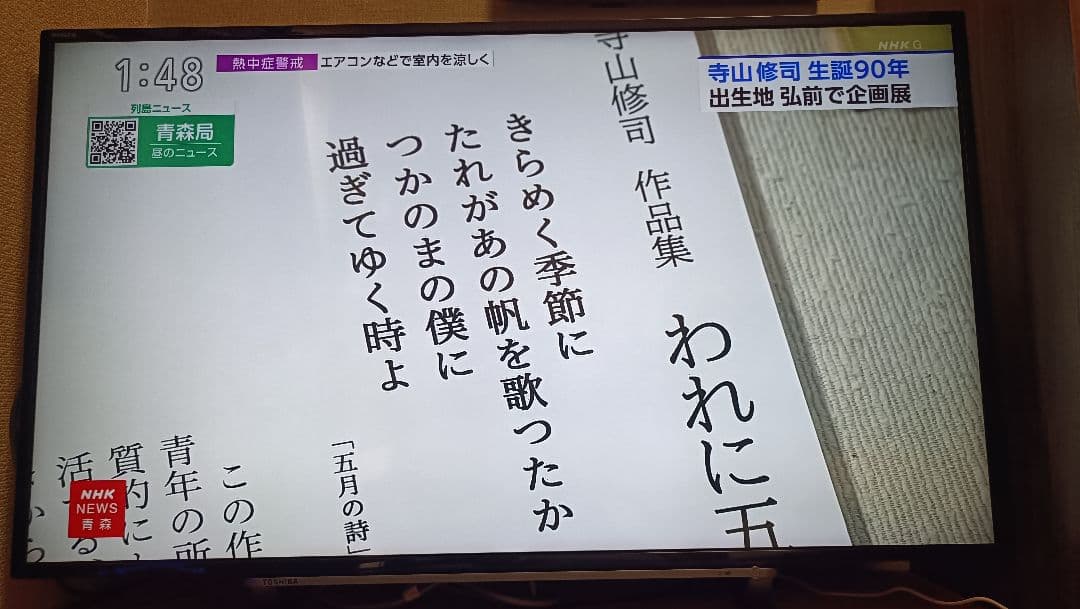 1:48
熱中症警戒
エアコンなどで室内を涼しく
NHK G
寺山修司 生誕90年
出生地 弘前で企画展
列島ニュース
青森局
昼のニュース
寺山修司 作品集
われに五
きらめく季節に
たれがあの帆を歌ったか
つかのまの僕に
過ぎてゆく時よ
「五月の詩」
この作
青年の所
質的に
活
る
NHK
NEWS
青森
TOSHIBA